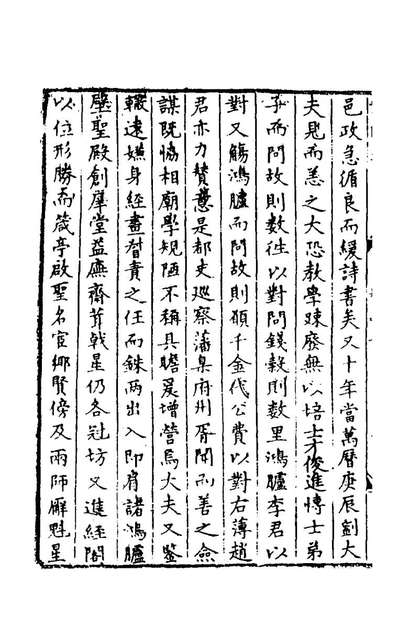 邑政急循良而緩詩書矣又十年當萬曆庚辰劉大
夫見而善之大恐教學踈廢無以培士才俊進博士弟
子而問故則数徃以對問錢穀則数里鴻臚李君以
對又觴鴻臚而問故則願千金代公費以對右簿趙
君亦力賛是都史廵察藩臬府州胥聞而善之僉
謀既恊相廟學規陋不稱具瞻爰增營焉大夫又鑒
轍遠嫌身經畫督責之任而銖两出入即肩諸鴻臚
壁聖殿創羣堂益廡齋葺戟星仍各冠坊又進經閣
以位形勝而箴亭啟聖名宦鄉賢傍及兩師廨魁星